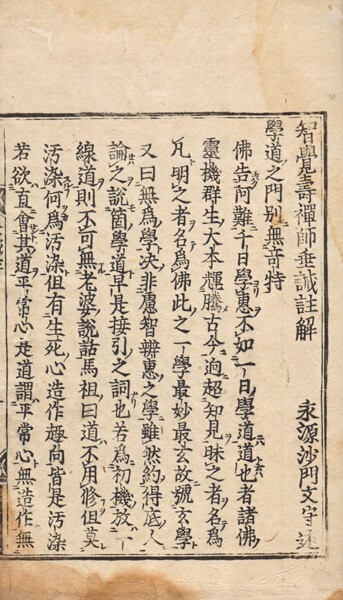 智覺壽禪師垂誡註解
永源沙門文守述
學道之門別無奇特
佛告阿難千日學惠不如一日學道道也者諸佛
靈機群生大本輝騰古今逈超知見昧之者名爲
凡明之者名爲佛此之一學最妙最玄故號玄學
又曰無爲學決非慮智辨惠之學雖然約得底人
論之說箇學道早是接引之詞也若爲初機放一
線道則不可無老婆說話馬祖曰道不用修但莫
汚染何爲汚染但有生死心造作趣向皆是汚染
若欲直會其道平常心是道謂平常心無造作無